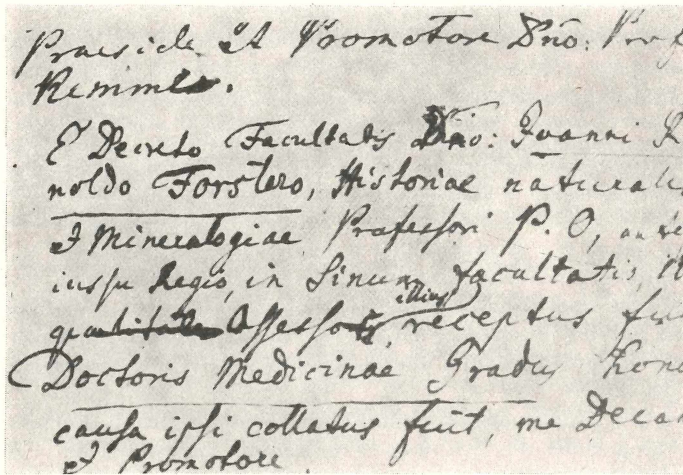 Praeside et Promotore Dno: Prof
Remmler.
E Decreto Facultatis Dno: Ioanni R
noldo Forstero, Historiae naturalis
et Mineralogiae Professori P. O,
iussu Regio, in Sinum facultatis,
qualitate Assessor illius receptus
Doctoris Medicinae Gradus hono
causa ipsi collatus fuit, me Decan
et Promotore